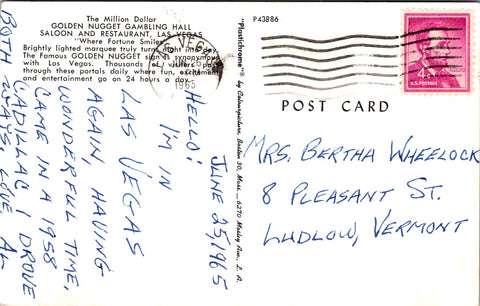 The Million Dollar
GOLDEN NUGGET GAMBLING HALL
SALOON AND RESTAURANT, LAS VEGAS
"Where Fortune Smiles"
Brightly lighted marquee truly turns night into day.
The Famous GOLDEN NUGGET sign is synonymous
with Las Vegas. Thousands of visitors pass
through these portals daily where fun, excitement
and entertainment go on 24 hours a day.
P43886
VEGAS
1965
4¢
U.S. POSTAGE
POST CARD
"Plastichrome" by Colourpicture, Boston 30, Mass.
6270 Mosley Ave., L. A.
JUNE 25, 1965
HELLO!
I'M IN
LAS VEGAS
AGAIN, HAVING
WUNDERFUL TIME,
CAME IN A 1958
CADILLAC I DROVE
BOTH WAYS. LOVE AL
MRS. BERTHA WHEELOCK
8 PLEASANT ST.
LUDLOW, VERMONT